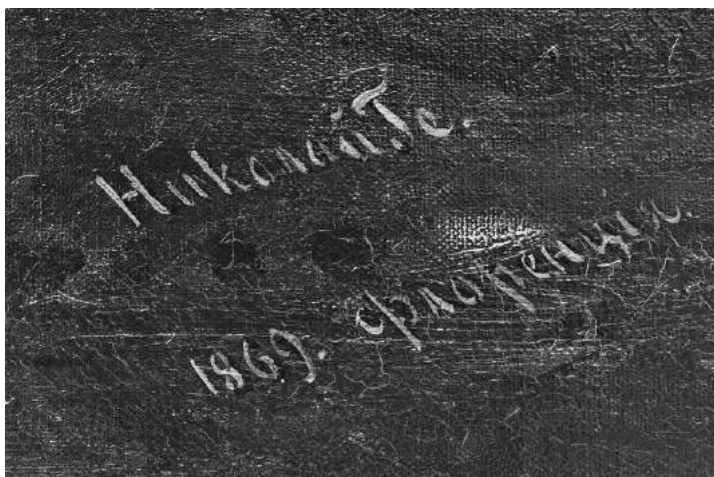 Николай Ге.
1869. Флоренция.